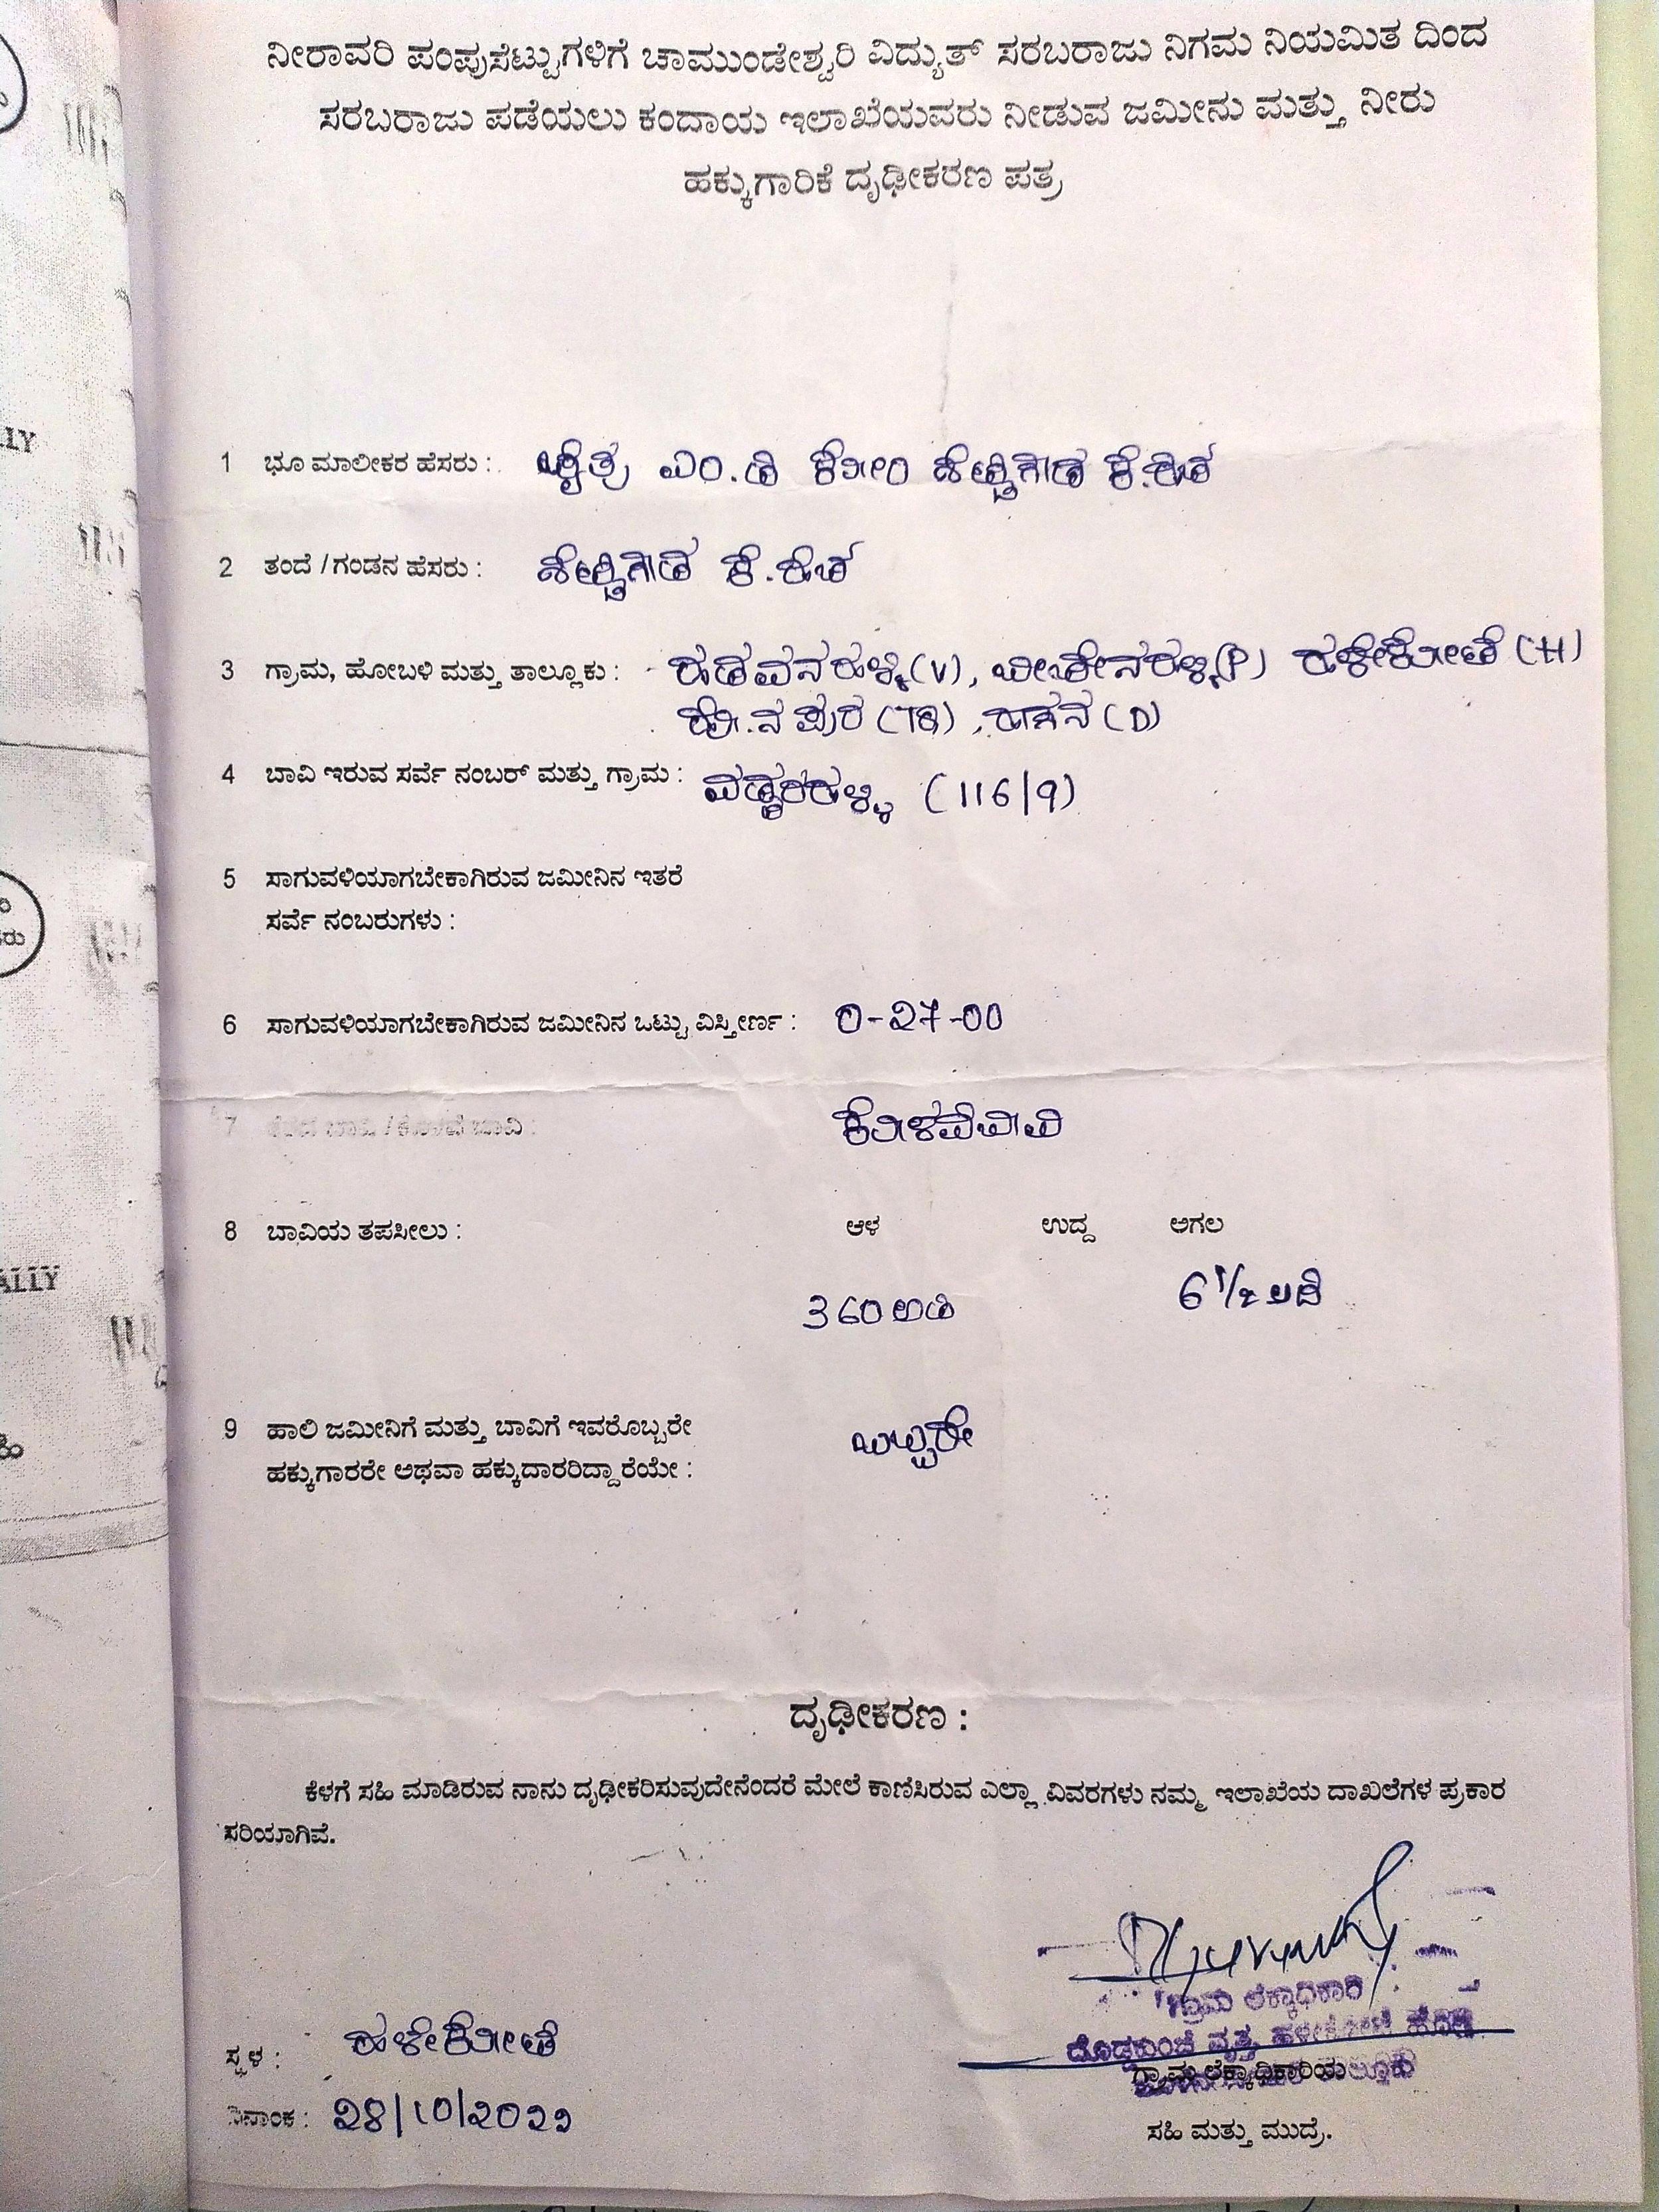 ನೀರಾವರಿ ಪಂಪುಸೆಟ್ಟುಗಳಿಗೆ ಚಾಮುಂಡೇಶ್ವರಿ ವಿದ್ಯುತ್ ಸರಬರಾಜು ನಿಗಮ ನಿಯಮಿತ ದಿಂದ
ಸರಬರಾಜು ಪಡೆಯಲು ಕಂದಾಯ ಇಲಾಖೆಯವರು ನೀಡುವ ಜಮೀನು ಮತ್ತು ನೀರು
ಹಕ್ಕುಗಾರಿಕೆ ದೃಢೀಕರಣ ಪತ್ರ
1 ಭೂ ಮಾಲೀಕರ ಹೆಸರು : ಚೈತ್ರ ಎಂ.ಡಿ ಕೋಂ
2 ತಂದೆ / ಗಂಡನ ಹೆಸರು :
3 ಗ್ರಾಮ, ಹೋಬಳಿ ಮತ್ತು ತಾಲ್ಲೂಕು : (V), (P) ಹಳೇಕೋಟೆ (H)
ಹೊ.ನ ಪುರ (TQ), ಹಾಸನ (D)
4 ಬಾವಿ ಇರುವ ಸರ್ವೆ ನಂಬರ್ ಮತ್ತು ಗ್ರಾಮ : ವಡ್ಡರಹಳ್ಳಿ (116/9)
5 ಸಾಗುವಳಿಯಾಗಬೇಕಾಗಿರುವ ಜಮೀನಿನ ಇತರೆ
ಸರ್ವೆ ನಂಬರುಗಳು :
6 ಸಾಗುವಳಿಯಾಗಬೇಕಾಗಿರುವ ಜಮೀನಿನ ಒಟ್ಟು ವಿಸ್ತೀರ್ಣ : 0-27-00
7 ತೆರೆದ ಬಾವಿ / ಕೊಳವೆ ಬಾವಿ : ಕೊಳವೆಬಾವಿ
8 ಬಾವಿಯ ತಪಸೀಲು : ಆಳ ಉದ್ದ ಅಗಲ
360 ಅಡಿ 6 1/2 ಅಡಿ
9 ಹಾಲಿ ಜಮೀನಿಗೆ ಮತ್ತು ಬಾವಿಗೆ ಇವರೊಬ್ಬರೇ ಒಬ್ಬರೇ
ಹಕ್ಕುಗಾರರೇ ಅಥವಾ ಹಕ್ಕುದಾರರಿದ್ದಾರೆಯೇ :
ದೃಢೀಕರಣ :
ಕೆಳಗೆ ಸಹಿ ಮಾಡಿರುವ ನಾನು ದೃಢೀಕರಿಸುವುದೇನೆಂದರೆ ಮೇಲೆ ಕಾಣಿಸಿರುವ ಎಲ್ಲಾ ವಿವರಗಳು ನಮ್ಮ ಇಲಾಖೆಯ ದಾಖಲೆಗಳ ಪ್ರಕಾರ
ಸರಿಯಾಗಿವೆ.
ಗ್ರಾಮ ಲೆಕ್ಕಾಧಿಕಾರಿ
ದೊಡ್ಡಕುಂಚೆ ವೃತ್ತ ಹಳೇಕೋಟೆ ಹೋಬಳಿ
ಗ್ರಾಮ ಲೆಕ್ಕಾಧಿಕಾರಿಯ
ಸ್ಥಳ : ಹಳೇಕೋಟೆ
ದಿನಾಂಕ : 28/10/2022
ಸಹಿ ಮತ್ತು ಮುದ್ರೆ.